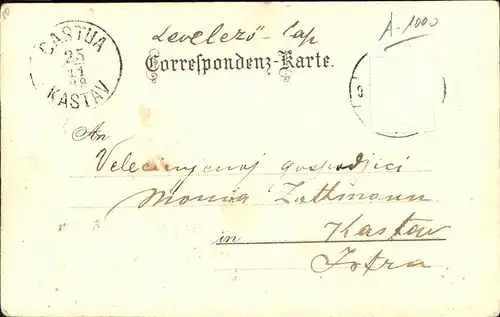 A-1000
CASTUA
25
11
98
KASTAV
Levelező-Lap
Correspondenz-Karte.
An
Velecijenoj gospodjici
Zathmann
in Kastav
Istra